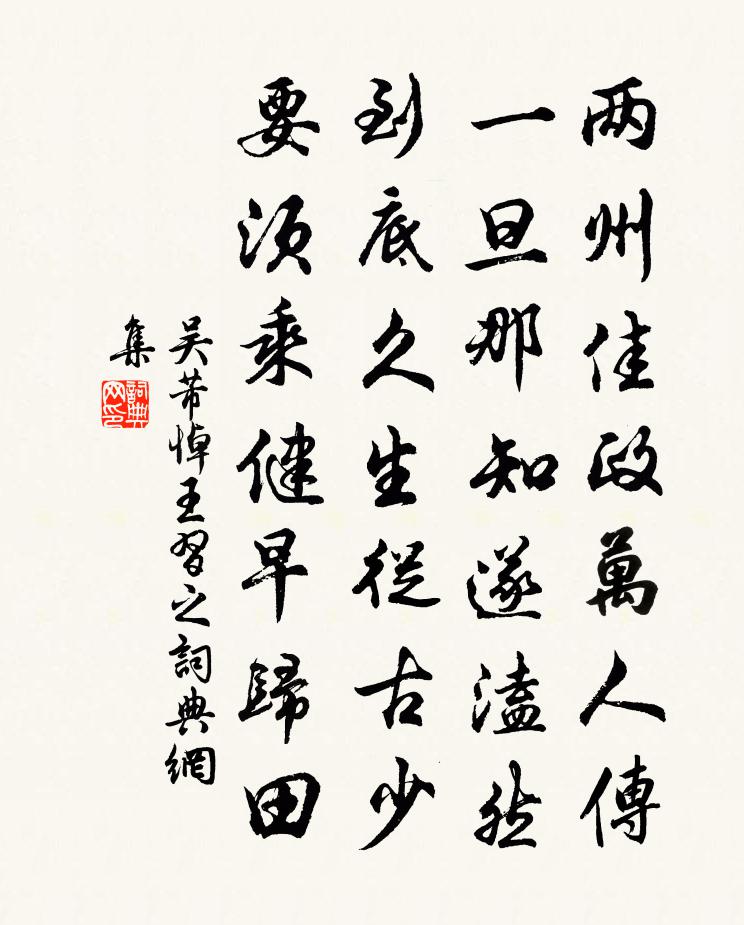 两州佳政萬人傳
一旦那知遂溘然
到底久生從古少
要須乘健早歸田
吴芾悼王習之詞典網
集
詞典
网印